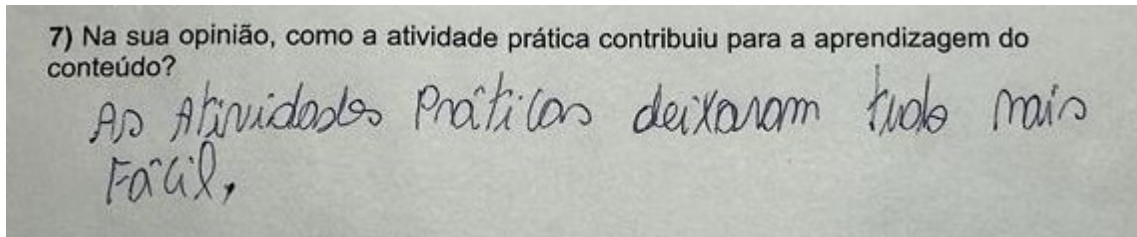 7) Na sua opinião, como a atividade prática contribuiu para a aprendizagem do
conteúdo?
As Atividades Práticas deixaram tudo mais
Fácil,